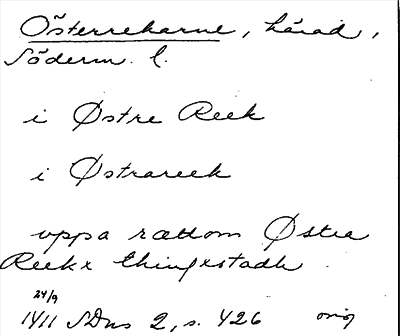 Österrekarne, härad,
Söderm. l.
i Østre Reek
i Østrareek
uppa rættom Østra
Reekx thingxstadh
24/9
1411 SDns 2, s. 426 orig